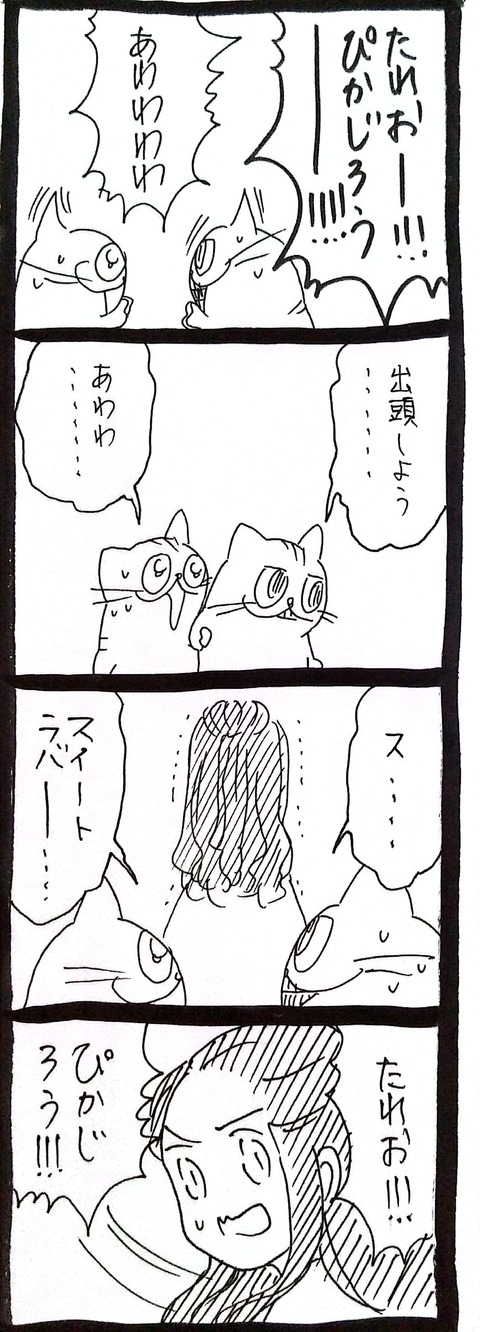 たれおー!!!
ぴかじろう
ー!!!!!…
あわわわわ
出頭しよう
……
あわわ
……
ス……
スイート
ラバー……
たれお!!!
ぴかじ
ろう!!!